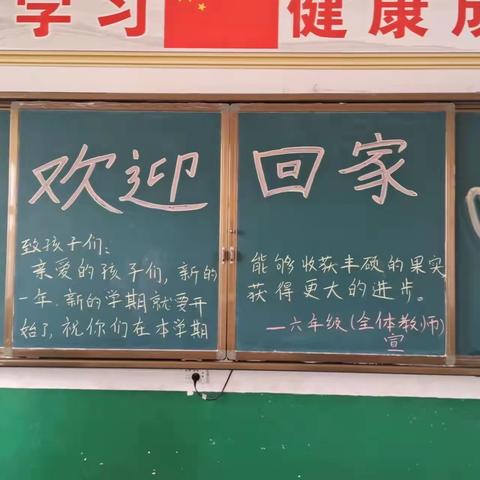 学习
健康成
欢迎
回家
致孩子们：
亲爱的孩子们，新的
一年，新的学期就要开
始了，祝你们在本学期
能够收获丰硕的果实
获得更大的进步。
—六年级(全体教师)
宣